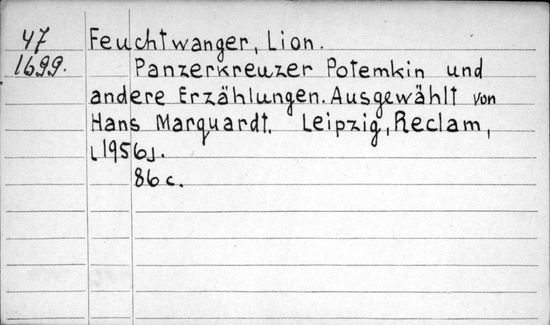 47 Feuchtwanger, Lion.
1699. Panzerkreuzer Potemkin und
andere Erzählungen. Ausgewählt von
Hans Marquardt. Leipzig, Reclam,
[1956].
86 c.